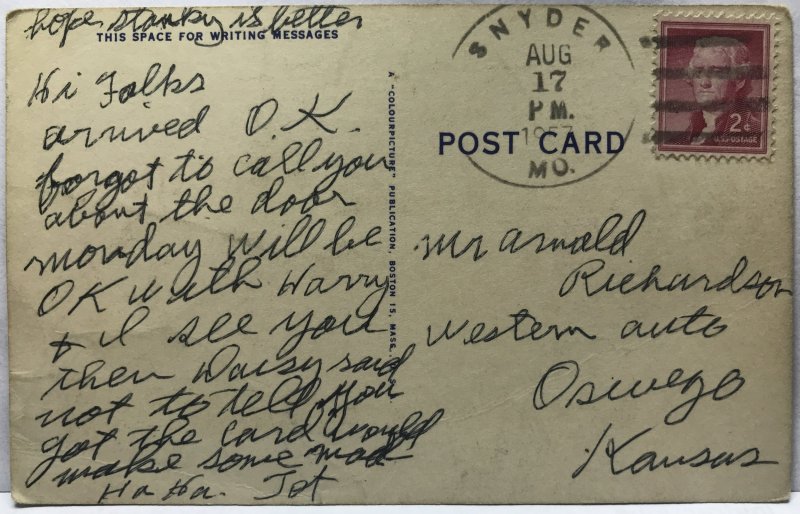 hope stanky is better
THIS SPACE FOR WRITING MESSAGES
Hi Folks
arrived O.K.
forgot to call you
about the door
monday will be
OK with Harry
& I see you
then Daisy said
not to tell you
got the card would
make some mad
Ha Ha. Jot
A "COLOURPICTURE" PUBLICATION, BOSTON 15, MASS.
SNYDER
AUG
17
PM.
1957
MO.
POST CARD
2¢
U.S. POSTAGE
Mr Arnold
Richardson
Western auto
Oswego
Kansas